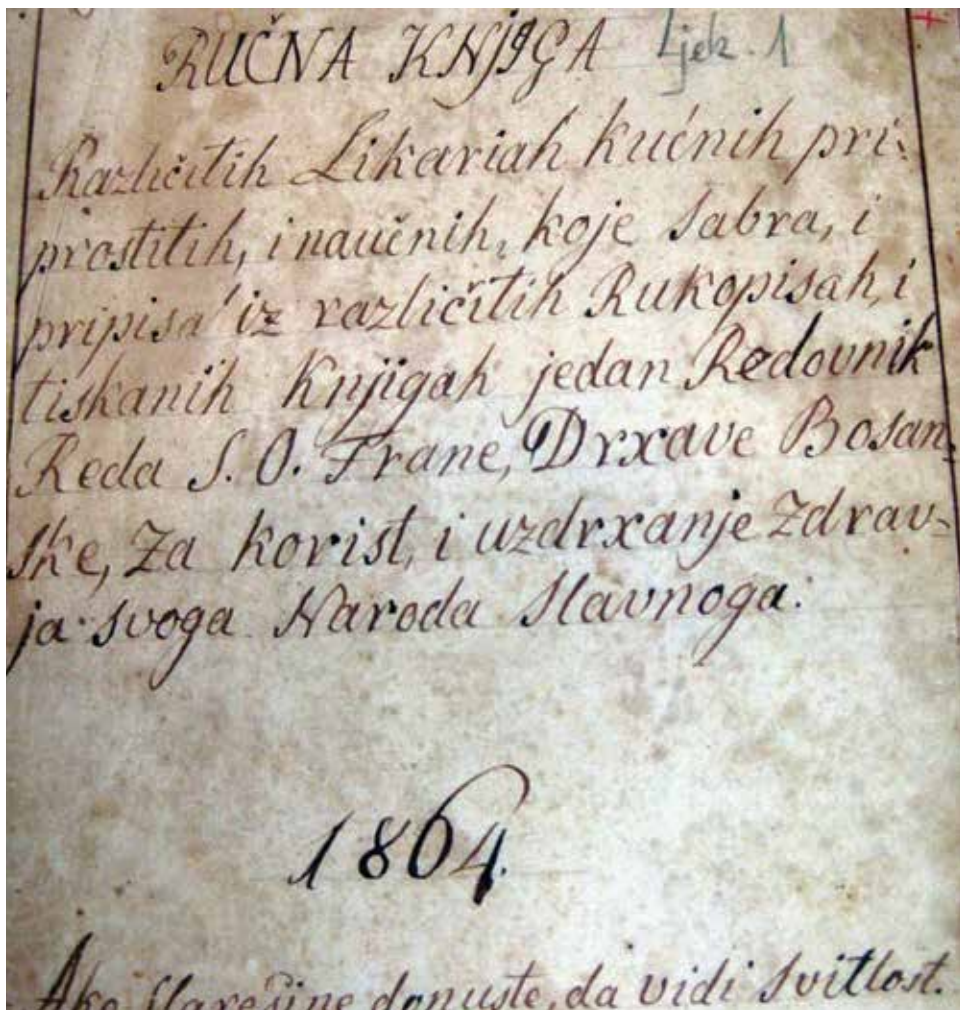 RUČNA KNJIGA Ljek. 1
Različitih Likariah kućnih pri-
prostitih, i naučnih, koje sabra, i
pripisa iz različitih Rukopisah, i
tiskanih Knjigah jedan Redovnik
Reda S. O. Frane, Drxave Bosan-
ske, Za korist, i uzdrxanje Zdrav-
ja svoga Naroda slavnoga.
1864.
Ako starešine dopuste, da vidi svitlost.